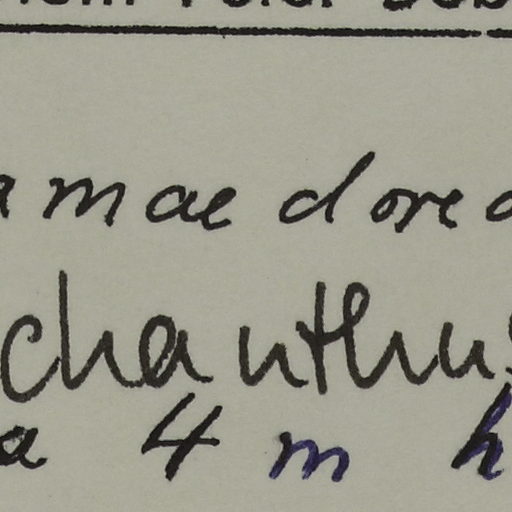 amae dorea
chanthus
a 4 m h